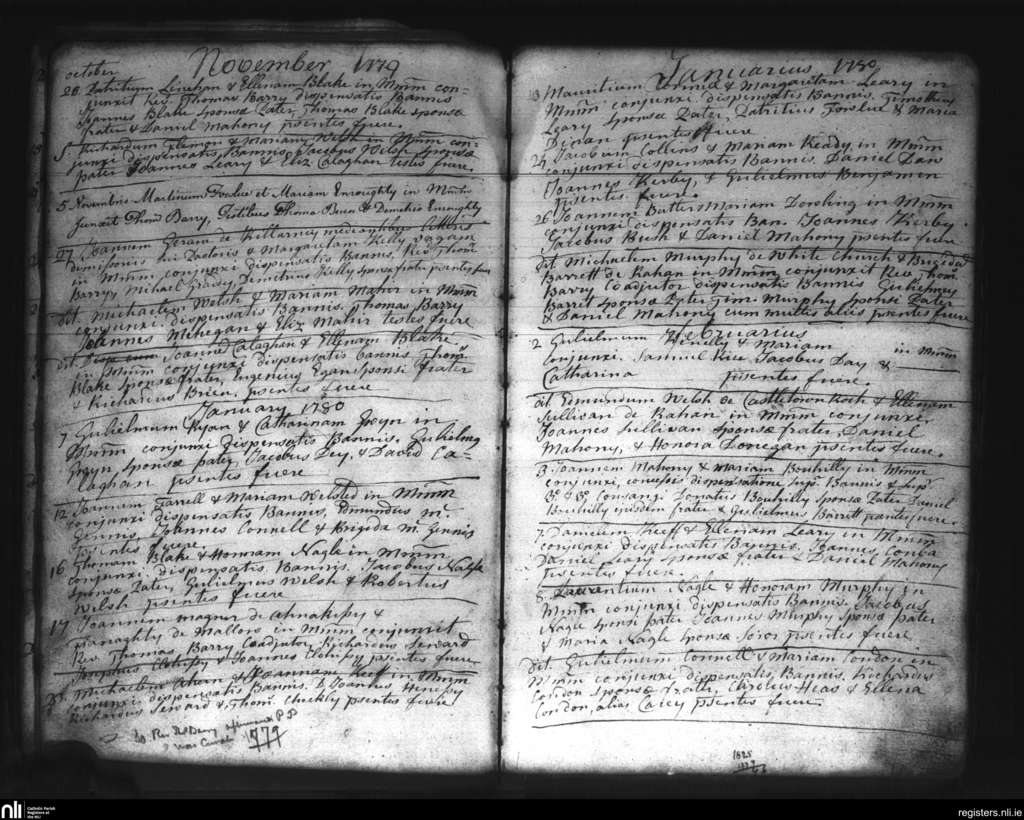 November 1779
october
28 Patritium Linehan & Ellenam Blake in Mmm con-
junxit Rev. Thomas Barry dispensatis Bannis
Joannes Blake Sponsæ Pater, Thomas Blake sponsæ
frater & Daniel Mahony psentes fuere.
Richardum Flemon & Mariam Welsh in Mmm con-
junxi dispensatis Bannis, Jacobus Welsh Sponsæ
pater Joannes Leary & Eliz Calaghan testes fuere.
5 Novembris Martinum Forelue et Mariam Enroughty in Mmm
junxit Thom Barry, Testibus Thoma Brien & Demetrio Enroughty
27 Joannem Geran de Killarney mediantibus litteris
demissoriis sui Pastoris & Margaretam Kelly vagam
in Mmm conjunxi dispensatis Bannis, Rev. Thom
Barry, Mihael Demetrius Kelly Sponsæ frater psentes fuere
dit Michaelem Welsh & Mariam Maher in Mmm
conjunxi dispensatis Bannis, Thomas Barry
Joannes Mihegan & Eliz Mahir testes fuere
dit Joannem Calaghan & Ellenam Blake
in Mmm conjunxi dispensatis bannis Thom
Blake Sponsæ frater, Eugenius Egan Sponsi frater
& Richardus Brien, psentes fuere
January 1780
7 Gulielmum Ryan & Catharinam Gwyn in
Mmm conjunxi dispensatis Bannis. Gulielmus
Gwyn, Sponsæ pater, Jacobus Dey, & David Ca-
laghan psentes fuere
12 Joannem Farrell & Mariam Welsted in Mmm
conjunxi dispensatis Bannis, Edmundus Mc
Gennis, Joannes Connell & Brigida Mc Gennis
psentes fuere
16 Thomam Blake & Honoram Nagle in Mmm
conjunxi dispensatis Bannis. Jacobus Nagle
Sponsæ Pater, Gulielmus Welsh & Robertus
Welsh psentes fuere
17 Joannem magner de Ahnakishy &
de Mallow in Mmm conjunxit
Rev Thomas Barry Coadjutor, Richardus Seward
& Joannes psentes fuere
Michaelem Ahern & Joannam Keef in Mmm
conjunxi dispensatis Bannis. & Joannes Henessy
Richardus Seward & Thom. psentes fuere
Rev Barry afterwards P P
was Curate 1779
Januarius 1780
13 Mauritium Connell & Margaretam Leary in
Mmm conjunxi dispensatis Bannis. Timotheus
Leary Sponsæ Pater, Patritius Forelue & Maria
psentes fuere
24 Jacobum Collins & Mariam Keady, in Mmm
conjunxi dispensatis Bannis. Daniel Daw
Joannes Kerby, & Gulielmus Benjamen
psentes fuere
26 Joannem Butter Mariam Dowling in Mmm
conjunxi dispensatis Ban. Joannes Kerby
Jacobus Bush & Daniel Mahony psentes fuere
dit Michaelem Murphy de White Church & Brigida
Barrett de Rahan in Mmm conjunxit Rev. Thom
Barry Coadjutor dispensatis Bannis Gulielmus
Barrit Sponsæ Pater Tim. Murphy Sponsi Pater
& Daniel Mahony cum multis aliis psentes fuere
Februarius
2 Gulielmum & Mariam in Mmm
conjunxi. Samuel Rice Jacobus Day &
Catharina psentes fuere.
dit Edmundum Welsh de Castletownroch & Ellenam
Sullivan de Rahan in Mmm conjunxi
Joannes Sullivan Sponsæ frater, Daniel
Mahony, & Honora Donegan psentes fuere.
3 Joannem Mahony & Mariam Bouhilly in Mmm
conjunxi, dispensatione Bannis &
Consangi Donatis Bouhilly Sponsæ Pater Daniel
Bouhilly ejusdem frater & Gulielmus Barrett psentes fuere.
7 Danielem Keeff & Ellenam Leary in Mmm
conjunxi dispensatis Bannis. Joannes
Daniel Leary Sponsæ frater & Daniel Mahony
psentes fuere.
8 Laurentium Nagle & Honoram Murphy in
Mmm conjunxi dispensatis Bannis. Jacobus
Nagle sponsi pater Joannes Murphy Sponsæ pater
& Maria Nagle Sponsæ Soror psentes fuere
dit Gulielmum Connell & Mariam Condon in
Mmm conjunxi dispensatis Bannis. Richardus
Condon Sponsæ frater, Heas & Ellena
Condon, alias Carey psentes fuere
1825
nli
Catholic Parish
Registers at
the NLI
registers.nli.ie